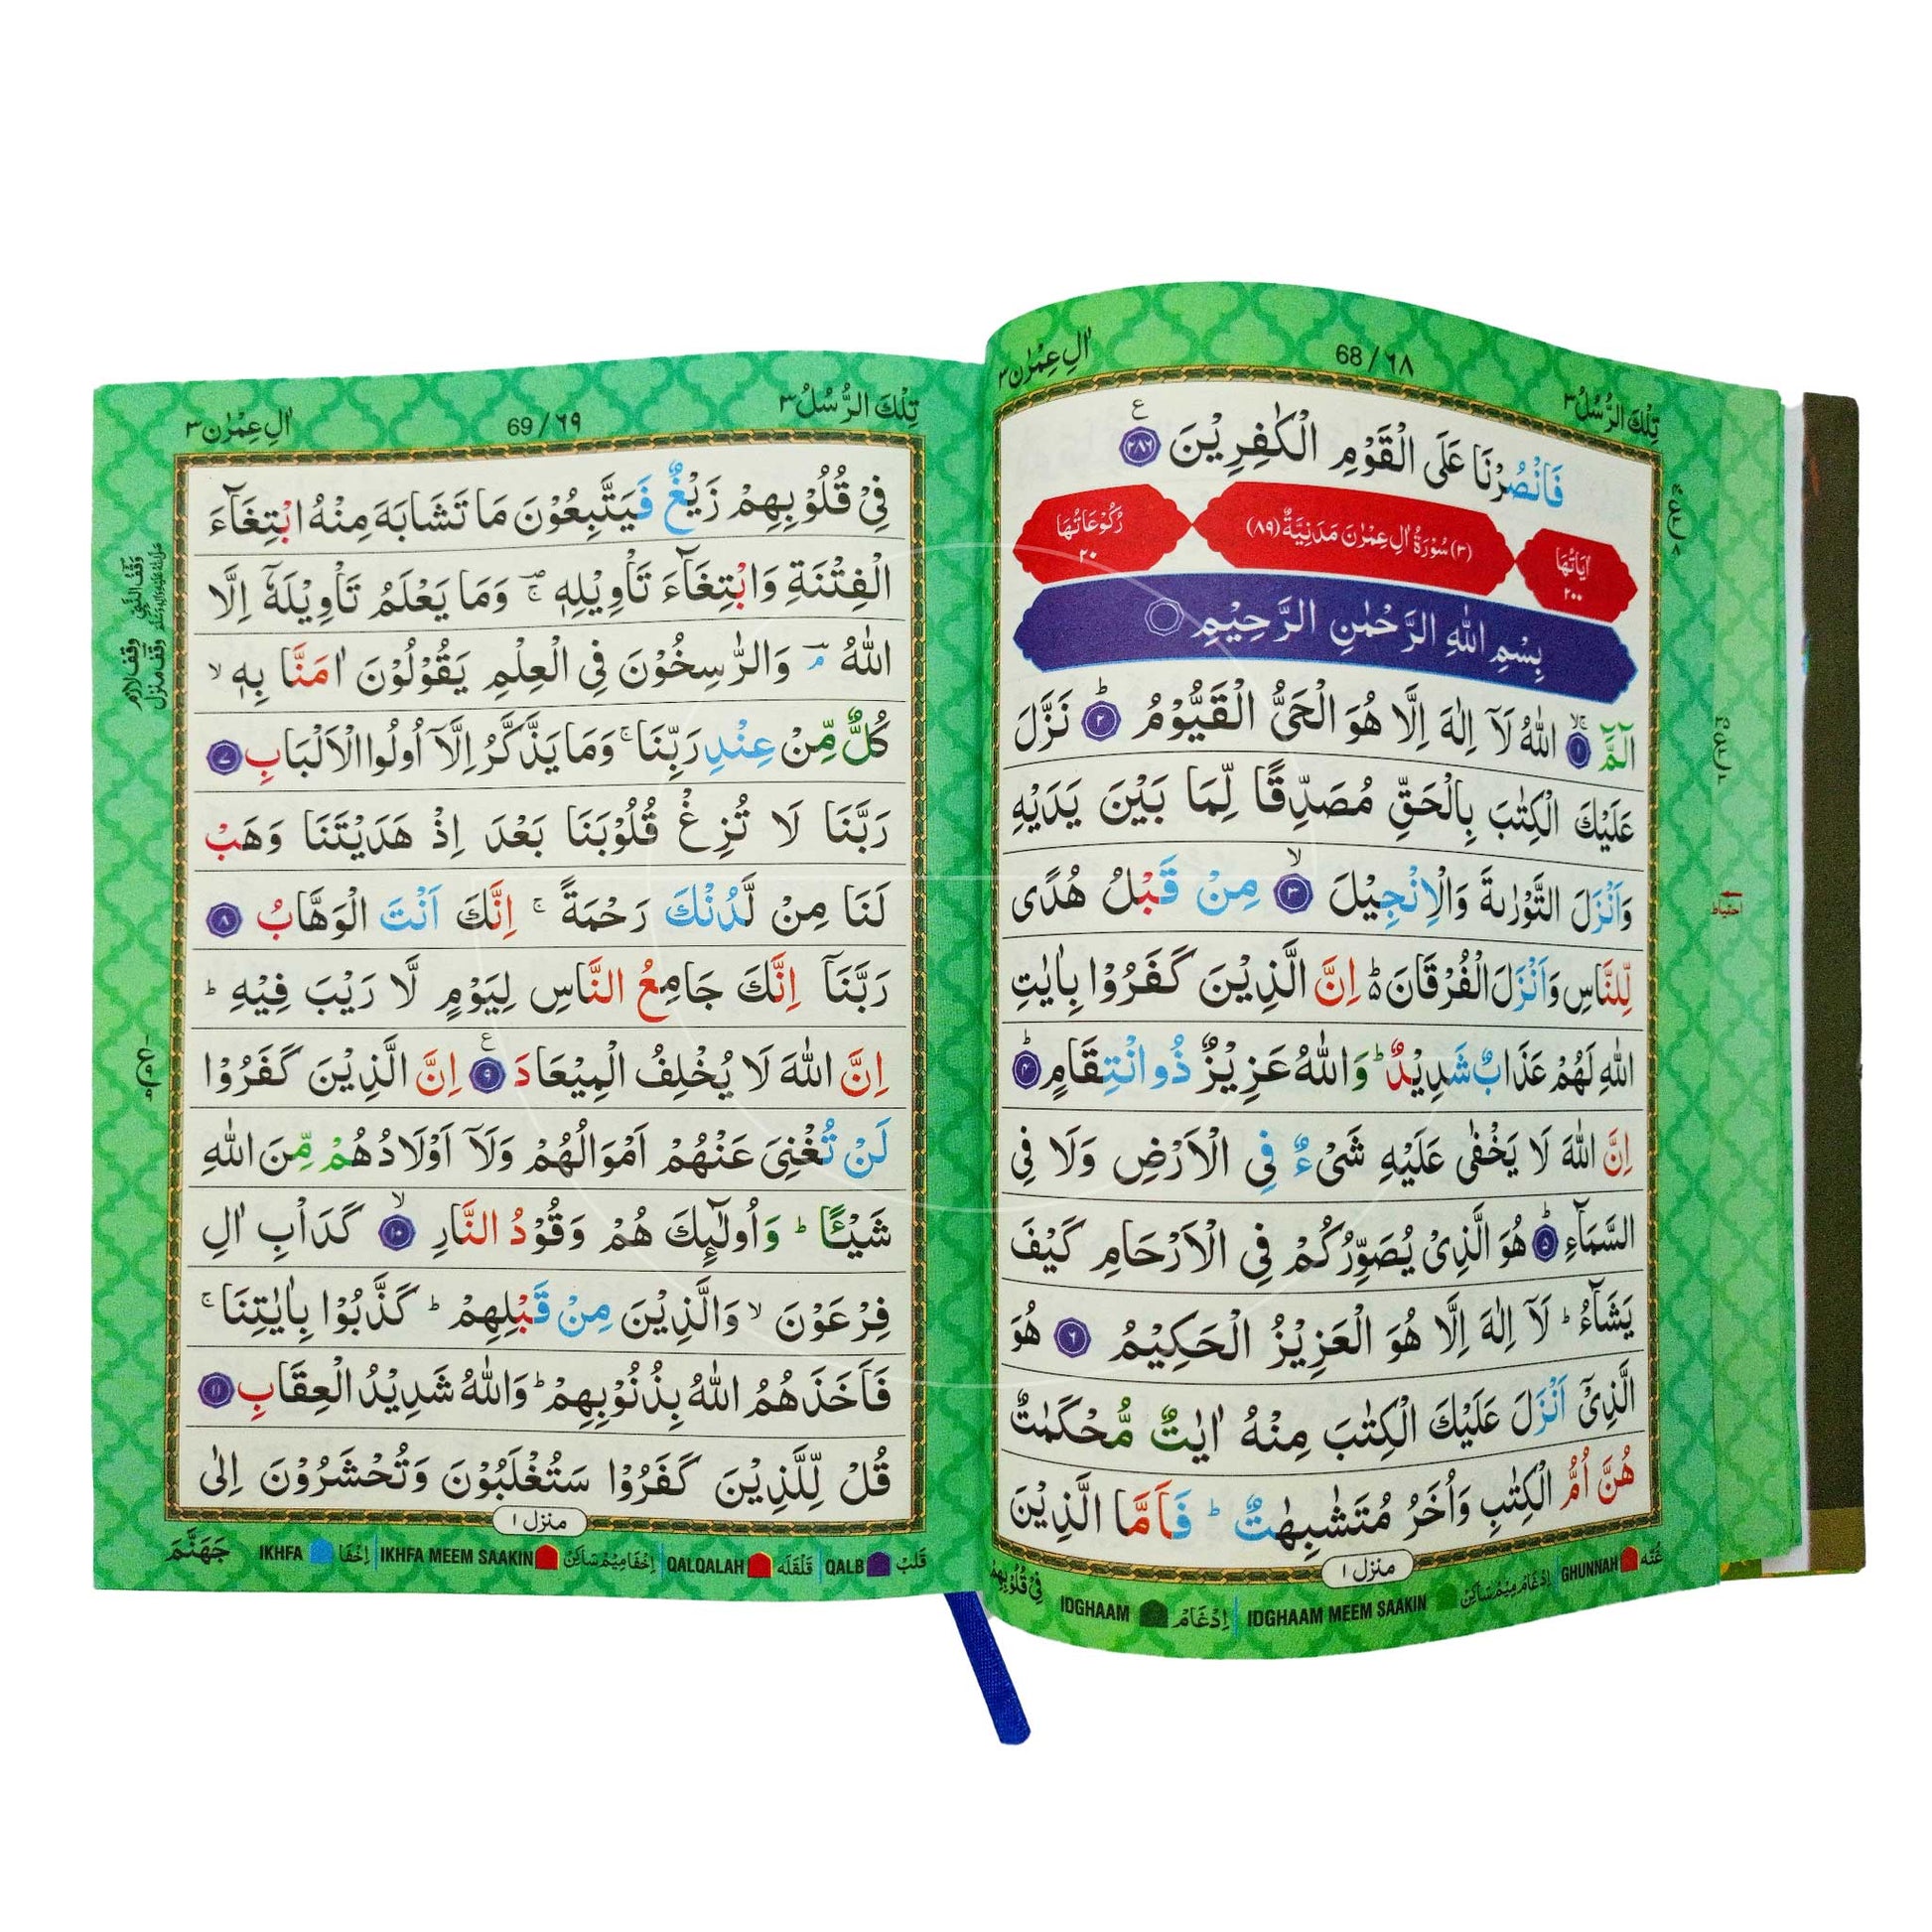 اٰلِ عِمْرٰن ٣
68 / ٦٨
تِلْكَ الرُّسُلُ ٣
فَانْصُرْنَا عَلَى الْقَوْمِ الْكٰفِرِيْنَ ﴿٢٨٦﴾ ع
اٰيَاتُهَا ٢٠٠
(٣) سُوْرَةُ اٰلِ عِمْرٰنَ مَدَنِيَّةٌ (٨٩)
رُكُوْعَاتُهَا ٢٠
بِسْمِ اللّٰهِ الرَّحْمٰنِ الرَّحِيْمِ
الٓمّٓ ﴿١﴾ اللّٰهُ لَاۤ اِلٰهَ اِلَّا هُوَ الْحَيُّ الْقَيُّوْمُ ﴿٢﴾ؕ نَزَّلَ
عَلَيْكَ الْكِتٰبَ بِالْحَقِّ مُصَدِّقًا لِّمَا بَيْنَ يَدَيْهِ
وَاَنْزَلَ التَّوْرٰىةَ وَالْاِنْجِيْلَ ﴿٣﴾ۙ مِنْ قَبْلُ هُدًى
لِّلنَّاسِ وَاَنْزَلَ الْفُرْقَانَ ؕ اِنَّ الَّذِيْنَ كَفَرُوْا بِاٰيٰتِ
اللّٰهِ لَهُمْ عَذَابٌ شَدِيْدٌ ؕ وَاللّٰهُ عَزِيْزٌ ذُو انْتِقَامٍ ﴿٤﴾ؕ
اِنَّ اللّٰهَ لَا يَخْفٰى عَلَيْهِ شَیْءٌ فِي الْاَرْضِ وَلَا فِي
السَّمَآءِ ﴿٥﴾ؕ هُوَ الَّذِيْ يُصَوِّرُكُمْ فِي الْاَرْحَامِ كَيْفَ
يَشَآءُ ؕ لَاۤ اِلٰهَ اِلَّا هُوَ الْعَزِيْزُ الْحَكِيْمُ ﴿٦﴾ هُوَ
الَّذِيْۤ اَنْزَلَ عَلَيْكَ الْكِتٰبَ مِنْهُ اٰيٰتٌ مُّحْكَمٰتٌ
هُنَّ اُمُّ الْكِتٰبِ وَاُخَرُ مُتَشٰبِهٰتٌ ؕ فَاَمَّا الَّذِيْنَ
منزل ١
فِيْ قُلُوْبِهِمْ
IDGHAAM اِدْغَامْ | IDGHAAM MEEM SAAKIN اِدْغَامْ مِيْمْ سَاكِنْ | GHUNNAH غُنَّه
احتياط
اٰلِ عِمْرٰن ٣
69 / ٦٩
تِلْكَ الرُّسُلُ ٣
فِيْ قُلُوْبِهِمْ زَيْغٌ فَيَتَّبِعُوْنَ مَا تَشَابَهَ مِنْهُ ابْتِغَآءَ
الْفِتْنَةِ وَابْتِغَآءَ تَاْوِيْلِهٖ ۚ وَمَا يَعْلَمُ تَاْوِيْلَهٗۤ اِلَّا
اللّٰهُ ۘ وَالرّٰسِخُوْنَ فِي الْعِلْمِ يَقُوْلُوْنَ اٰمَنَّا بِهٖ ۙ
كُلٌّ مِّنْ عِنْدِ رَبِّنَا ۚ وَمَا يَذَّكَّرُ اِلَّاۤ اُولُوا الْاَلْبَابِ ﴿٧﴾
رَبَّنَا لَا تُزِغْ قُلُوْبَنَا بَعْدَ اِذْ هَدَيْتَنَا وَهَبْ
لَنَا مِنْ لَّدُنْكَ رَحْمَةً ۚ اِنَّكَ اَنْتَ الْوَهَّابُ ﴿٨﴾
رَبَّنَاۤ اِنَّكَ جَامِعُ النَّاسِ لِيَوْمٍ لَّا رَيْبَ فِيْهِ ؕ
اِنَّ اللّٰهَ لَا يُخْلِفُ الْمِيْعَادَ ﴿٩﴾ ع اِنَّ الَّذِيْنَ كَفَرُوْا
لَنْ تُغْنِيَ عَنْهُمْ اَمْوَالُهُمْ وَلَاۤ اَوْلَادُهُمْ مِّنَ اللّٰهِ
شَيْـًٔا ؕ وَاُولٰٓئِكَ هُمْ وَقُوْدُ النَّارِ ﴿١٠﴾ۙ كَدَاْبِ اٰلِ
فِرْعَوْنَ ۙ وَالَّذِيْنَ مِنْ قَبْلِهِمْ ؕ كَذَّبُوْا بِاٰيٰتِنَا ۚ
فَاَخَذَهُمُ اللّٰهُ بِذُنُوْبِهِمْ ؕ وَاللّٰهُ شَدِيْدُ الْعِقَابِ ﴿١١﴾
قُلْ لِّلَّذِيْنَ كَفَرُوْا سَتُغْلَبُوْنَ وَتُحْشَرُوْنَ اِلٰى
منزل ١
جَهَنَّمَ
IKHFA اِخْفَا | IKHFA MEEM SAAKIN اِخْفَا مِيْمْ سَاكِنْ | QALQALAH قَلْقَلَه | QALB قَلْبْ
وقف النبي
وقف لازم
وقف منزل